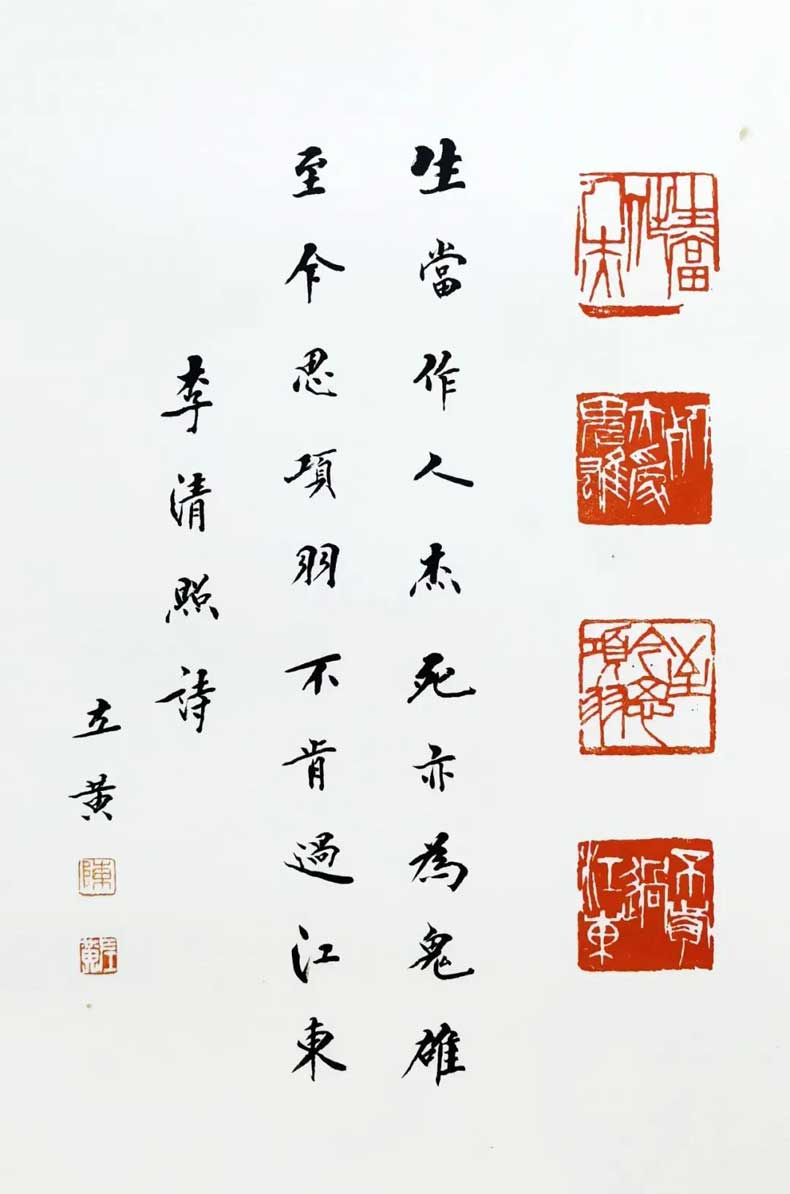 生當作人杰
死亦為鬼雄
至今思項羽
不肯過江東
生當作人杰死亦為鬼雄
至今思項羽不肯過江東
李清照詩
左黄
陳
左黃